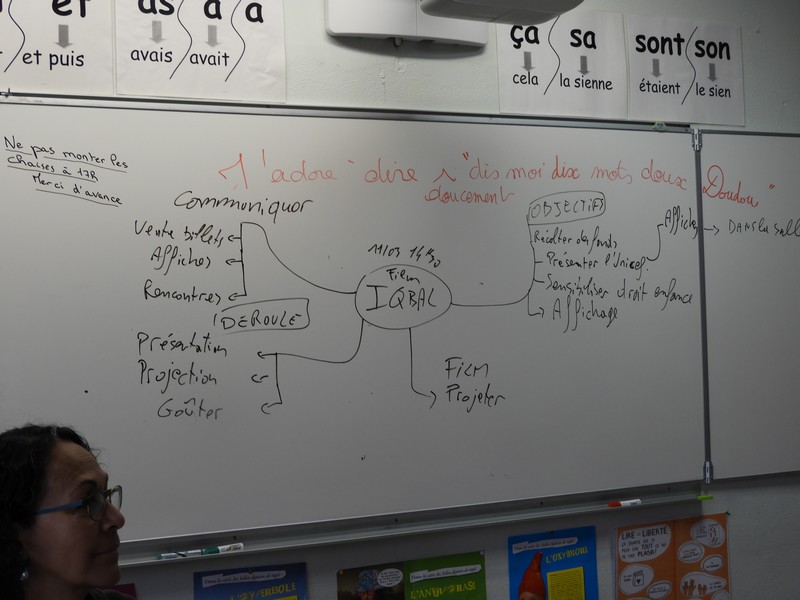 et
et puis
as
avais
a
avait
a
ça
cela
sa
la sienne
sont
étaient
son
le sien
Ne pas monter les
chaises à 17h
Merci d'avance
J'adore dire "dis moi dix mots doux Doudou"
doucement
Communiquer
Vente billets
Affiches
Rencontres
DEROULE
Présentation
Projection
Goûter
11/03 14h30
Film
IQBAL
FILM
Projeter
OBJECTIFS
Récolter des fonds
Présenter l'Unicef.
Sensibiliser droit enfance
Affichage
Affiches
DANS la salle
L'HYPERBOLE
L'OXYMORE
LIRE EN LIBERTÉ